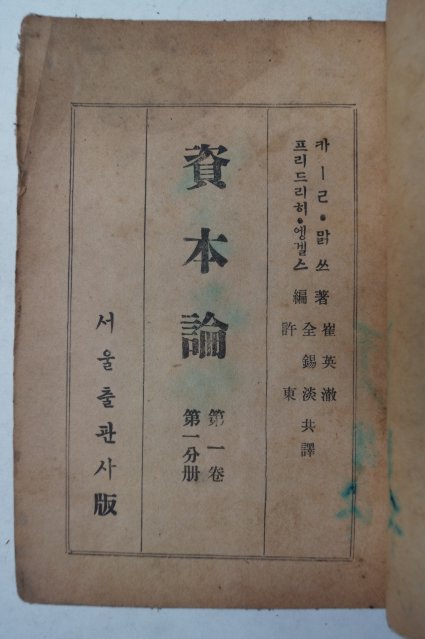 카ㅣㄹ·맑쓰著
프리드리히·엥겔스編
崔英澈
全錫淡共譯
許東
資本論
第一卷
第一分册
서울출판사版